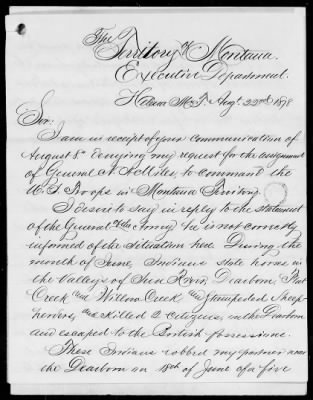 The Territory of Montana.
Executive Department.
Helena M.T. Augt. 22nd 1878
Sir:
I am in receipt of your communication of
August 8th denying my request for the assignment
of General N A Miles, to command the
U.S. Troops in Montana Territory.
I desire to say in reply to the statement
of the General of the Army he is not correctly
informed of the situation here. During the
month of June, Indians stole horses in
the Valleys of Sun River, Dearborn, Flat
Creek and Willow Creek and stampeded Sheep
herders, and killed 2 citizens, in the Dearborn
and escaped to the British possessions.
These Indians robbed my partner near
the Dearborn on 18th of June of a five